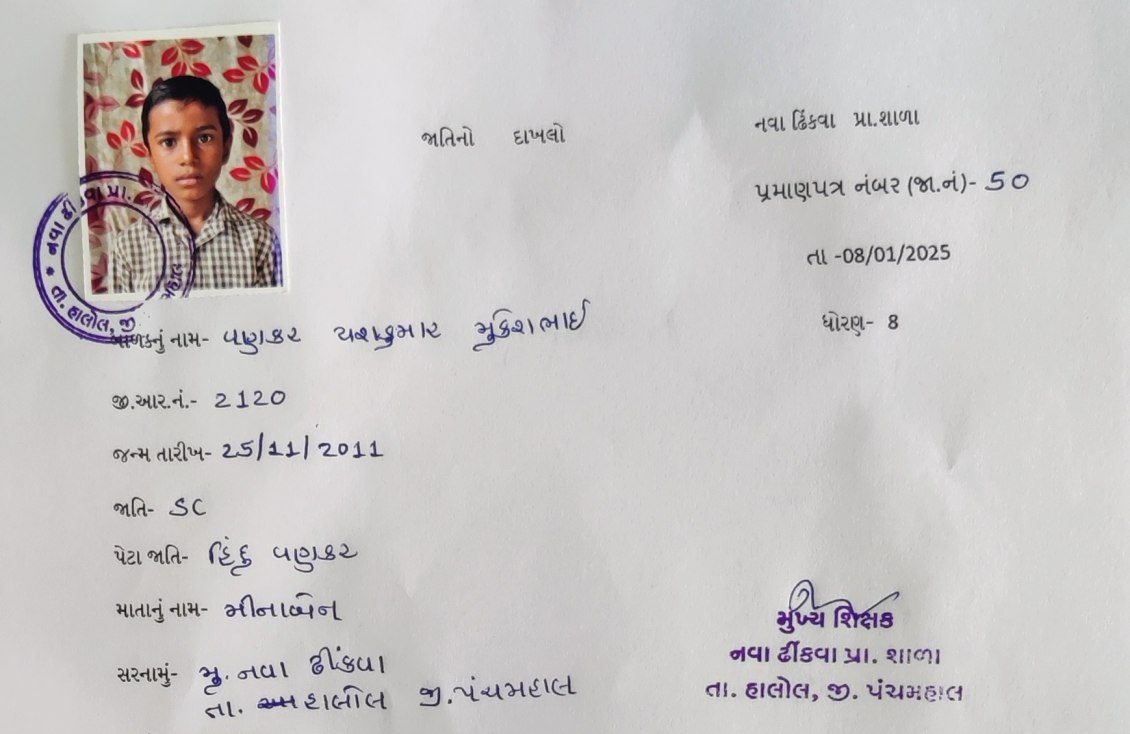 જાતિનો દાખલો
નવા ઢિંકવા પ્રા.શાળા
પ્રમાણપત્ર નંબર (જા.નં)- 50
તા -08/01/2025
ધોરણ- 8
નવા ઢીંકવા પ્રા.
* તા. હાલોલ, જી
મહાલ
બાળકનું નામ- વણકર યશકુમાર મુકેશભાઈ
જી.આર.નં.- 2120
જન્મ તારીખ- 25/11/2011
જાતિ- SC
પેટા જાતિ- હિંદુ વણકર
માતાનું નામ- મીનાબેન
સરનામું- મુ. નવા ઢીંકવા
તા. હાલોલ જી. પંચમહાલ
મુખ્ય શિક્ષક
નવા ઢીંકવા પ્રા. શાળા
તા. હાલોલ, જી. પંચમહાલ